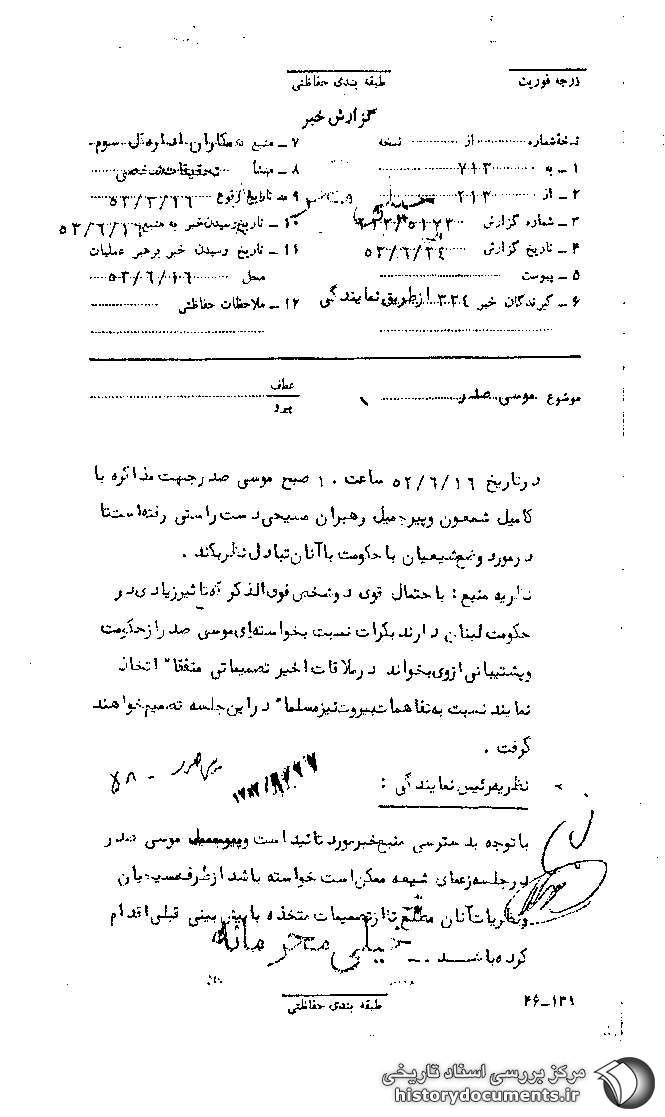 درجه فوریت
طبقه بندی حفاظتی
گزارش خبر
نسخه شماره از نسخه
۱ــ به ۷۱۳
۲ــ از ۲۱۳
۳ــ شماره گزارش
۴ــ تاریخ گزارش ۵۳/۶/۲۴
۵ــ پیوست
۶ــ گیرندگان خبر ۳۳۴ ازطریق نمایندگی
۷ــ منبع همکاران اداره کل سوم
۸ــ منشأ تحقیقات شخصی
۹ــ تاریخ وقوع ۵۳/۶/۱۶
۱۰ــ تاریخ رسیدن خبر به منبع ۵۳/۶/۱۶
۱۱ــ تاریخ رسیدن خبر برهبر عملیات
محل ۵۳/۶/۱۶
۱۲ــ ملاحظات حفاظتی
موضوع موسی صدر
عطف
پیرو
درتاریخ ۵۲/۶/۱۶ ساعت ۱۰ صبح موسی صدرجهت مذاکره با
کامیل شمعون وپیرجمیل رهبران مسیحی دست راستی رفته است تا
درمورد وضع شیعیان با حکومت باآنان تبادل نظر بکند .
نظریه منبع : با حتمال قوی دوشخص فوق الذکر که تاثیرزیادی در
حکومت لبنان دارند بکرات نسبت بخواستهای موسی صدرازحکومت
وپشتیبانی ازوی بخواند درملاقات اخیر تصمیماتی متفقا" اتخاذ
نمایند نسبت به تفاهمات بیروت نیزمسلما" دراین جلسه تصمیم خواهند
گرفت .
موسی صدر ــ ۵۸
نظریه رئیس نمایندگی :
با توجه بدسترسی منبع خبرمورد تائید است و موسی صدر
درجلسه زعمای شیعه ممکن است خواسته باشد ازطرف مسیحیان
ونظریات آنان مطلع تا ازتصمیمات متخذه با پیش بینی قبلی اقدام
کرده باشد ..
خیلی محرمانه
طبقه بندی حفاظتی
۲۶ــ۱۳۱
مرکز بررسی اسناد تاریخی
historydocuments.ir